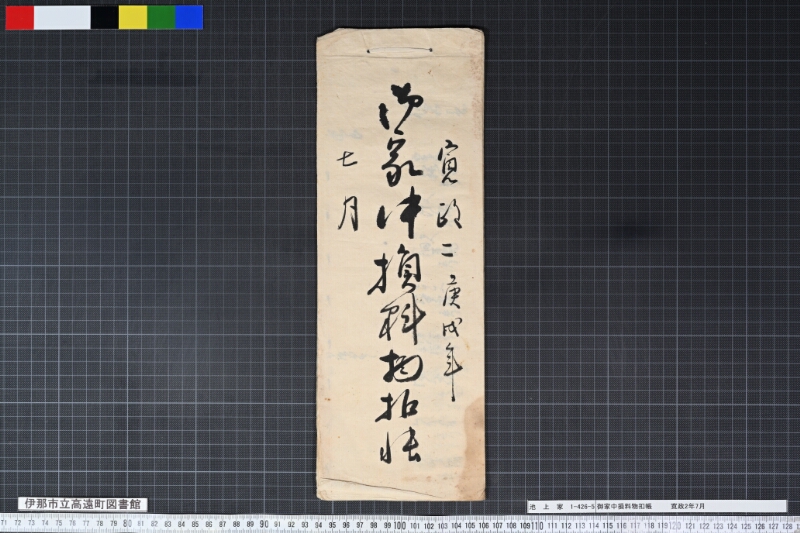 寛政二庚戌年
御家中損料物扣帳
七月
伊那市立高遠町図書館
池上家 1-426-5 御家中損料物扣帳 寛政2年7月
71 72 73 74 75 76 77 78 79 80 81 82 83 84 85 86 87 88 89 90 91 92 93 94 95 96 97 98 99 100 101 102 103 104 105 106 107 108 109 110 111 112 113 114 115 116 117 118 119 120 121 122 123 124 125 126 127 128 129